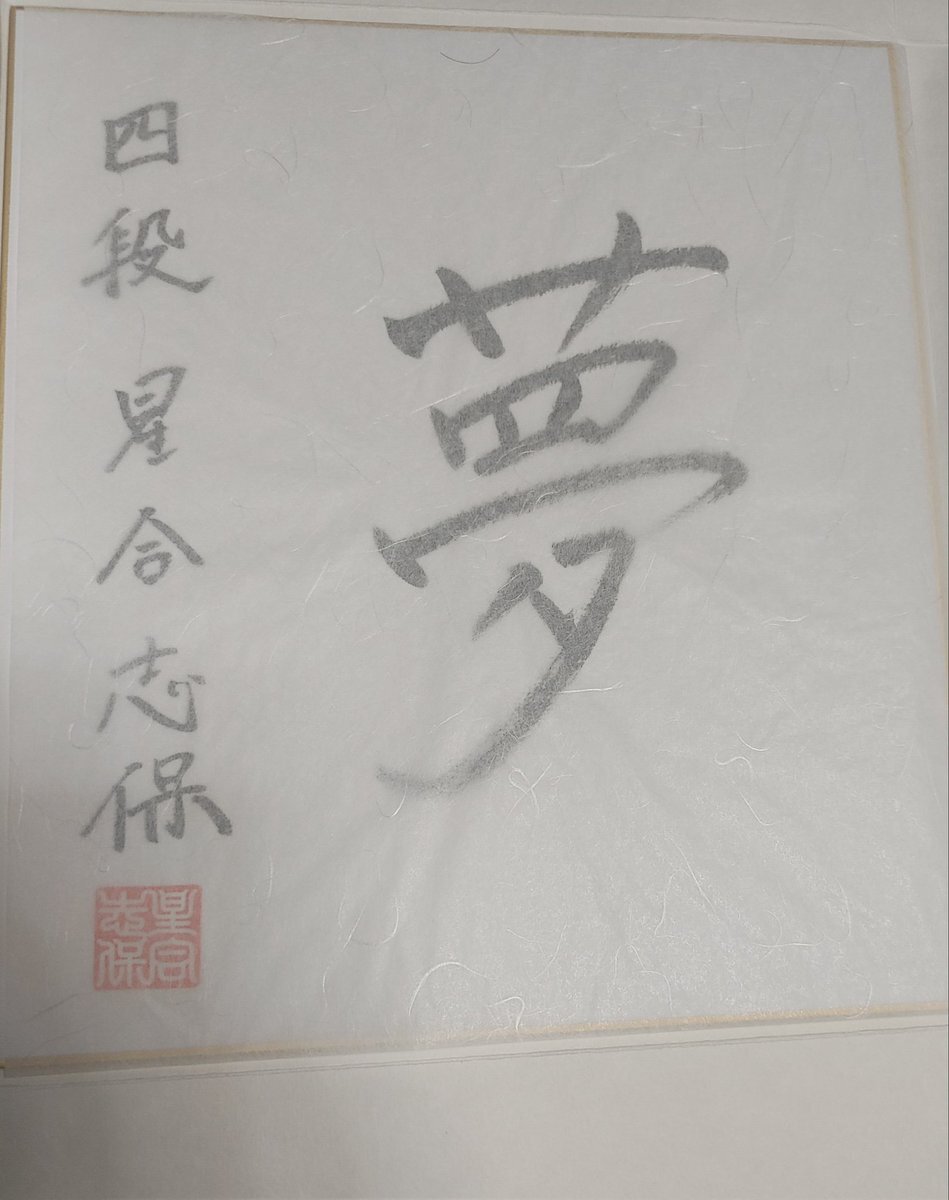 夢
四段 星合志保
星合志保